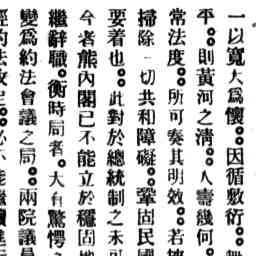 一以寬大爲懷。。因循敷衍。。
平。。則黃河之清。。人壽幾何。
常法度。。所可奏其明效。。若
掃除一切共和障礙。。鞏固民國
要着也。此對於總統制之未可
今者熊內閣已不能立於穩固地
繼辭職。衡時局者。大有驚愕之
變爲約法會議之局。。兩院議員